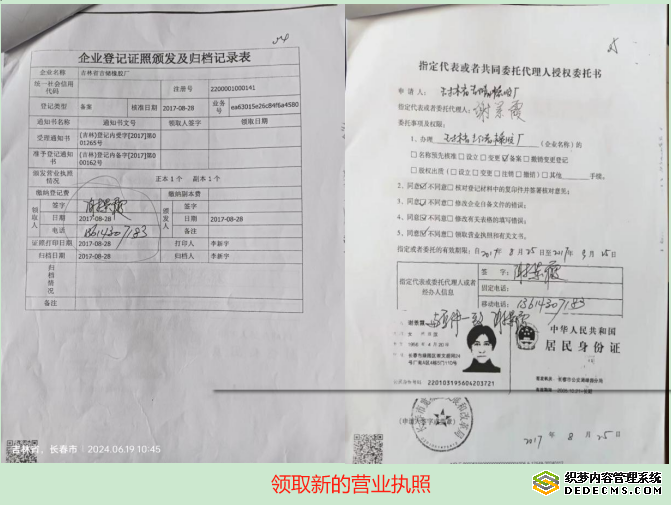 企业登记证照颁发及归档记录表
企业名称 吉林省吉储橡胶厂
统一社会信用代码 注册号 2200001000141
登记类型 备案 核准日期 2017-08-28 业务号 ea63015e26c84f6a4580
通知书名称 通知书文号 领取人签字 领取日期
受理通知书 (吉林)登记内受字[2017]第001265号
准予登记通知书 (吉林)登记内备字[2017]第000162号
颁发营业执照情况 正本1个 副本1个
缴纳登记费 缴纳副本费
领取人 签字 颁发人 签字
日期 2017-08-28 日期 2017-08-28
电话 13614307183 备注
证照打印日期 2017-08-28 打印人 李新宇
归档日期 2017-08-28 归档人 李新宇
归档情况
备注
吉林省，长春市 2024.06.19 10:45
指定代表或者共同委托代理人授权委托书
申请人：
指定代表或者委托代理人：
委托事项及权限：
1、办理 (企业名称)的
□名称预先核准 □设立 □变更 ☑备案 □撤销变更登记
□股权出质(□设立 □变更 □注销 □撤销) □其他 手续。
2、同意☑不同意□核对登记材料中的复印件并签署核对意见；
3、同意☑不同意□修改企业自备文件的错误；
4、同意☑不同意□修改有关表格的填写错误；
5、同意☑不同意□领取营业执照和有关文书。
指定或者委托的有效期限：自2017年8月25日至2017年9月25日
指定代表或委托代理人或者经办人信息 签字：
固定电话：
移动电话：13614307183
与原件一致
中华人民共和国
居民身份证
公民身份号码 220103195604203721
2017年8月25日
领取新的营业执照
织梦内容管理系统
DEDECMS.COM